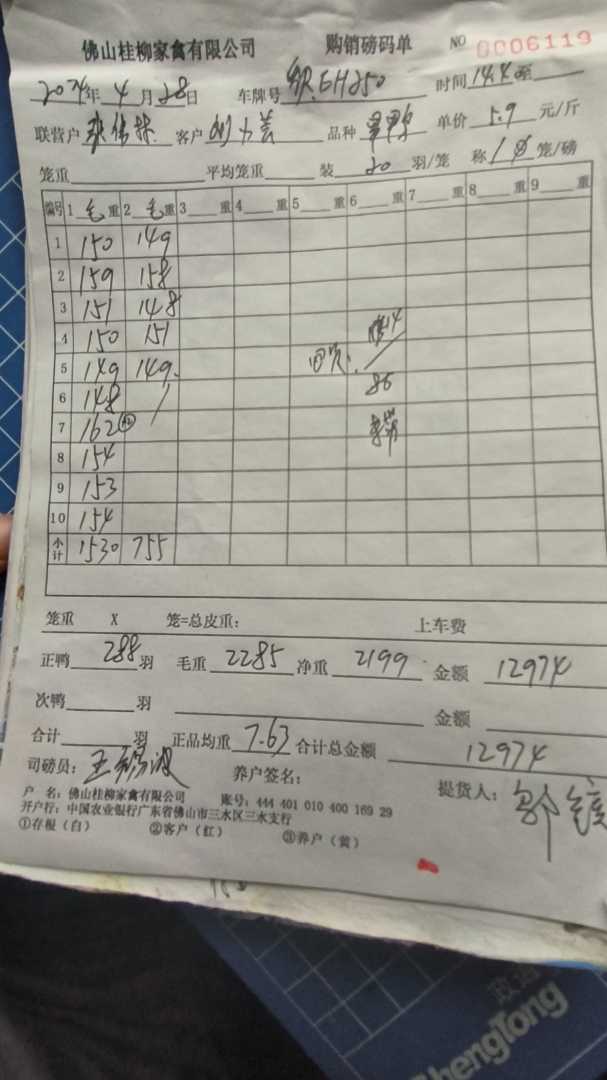 佛山桂柳家禽有限公司 购销磅码单 NO 0006119
2024年 4 月 28日 车牌号 EH250 时间 14.4 至
联营户 客户 品种 单价 5.9 元/斤
笼重 平均笼重 装 20 羽/笼 称 笼/磅
编号 1 毛 重 2 毛 重 3 重 4 重 5 重 6 重 7 重 8 重 9 重
1 150 149
2 159 158
3 151 148
4 150 151
5 149 149
6 148
86
7 162
8 154
9 153
10 154
小计 1530 755
笼重 X 笼=总皮重: 上车费
正鸭 288 羽 毛重 2285 净重 2199 金额 12974
次鸭 羽 金额
合计 羽 正品均重 7.63 合计总金额 12974
司磅员: 养户签名: 提货人:
户 名: 佛山桂柳家禽有限公司 账号: 444 401 010 400 169 29
开户行: 中国农业银行广东省佛山市三水区三水支行
①存根（白） ②客户（红） ③养户（黄）
ShengTong